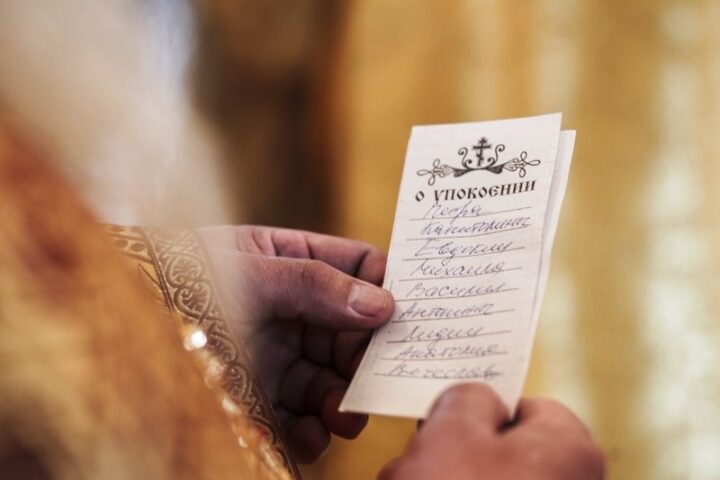 О УПОКОЕНИИ
Петра
Капитолины
Евдокии
Михаила
Василия
Антонины
Лидии
Анатолия